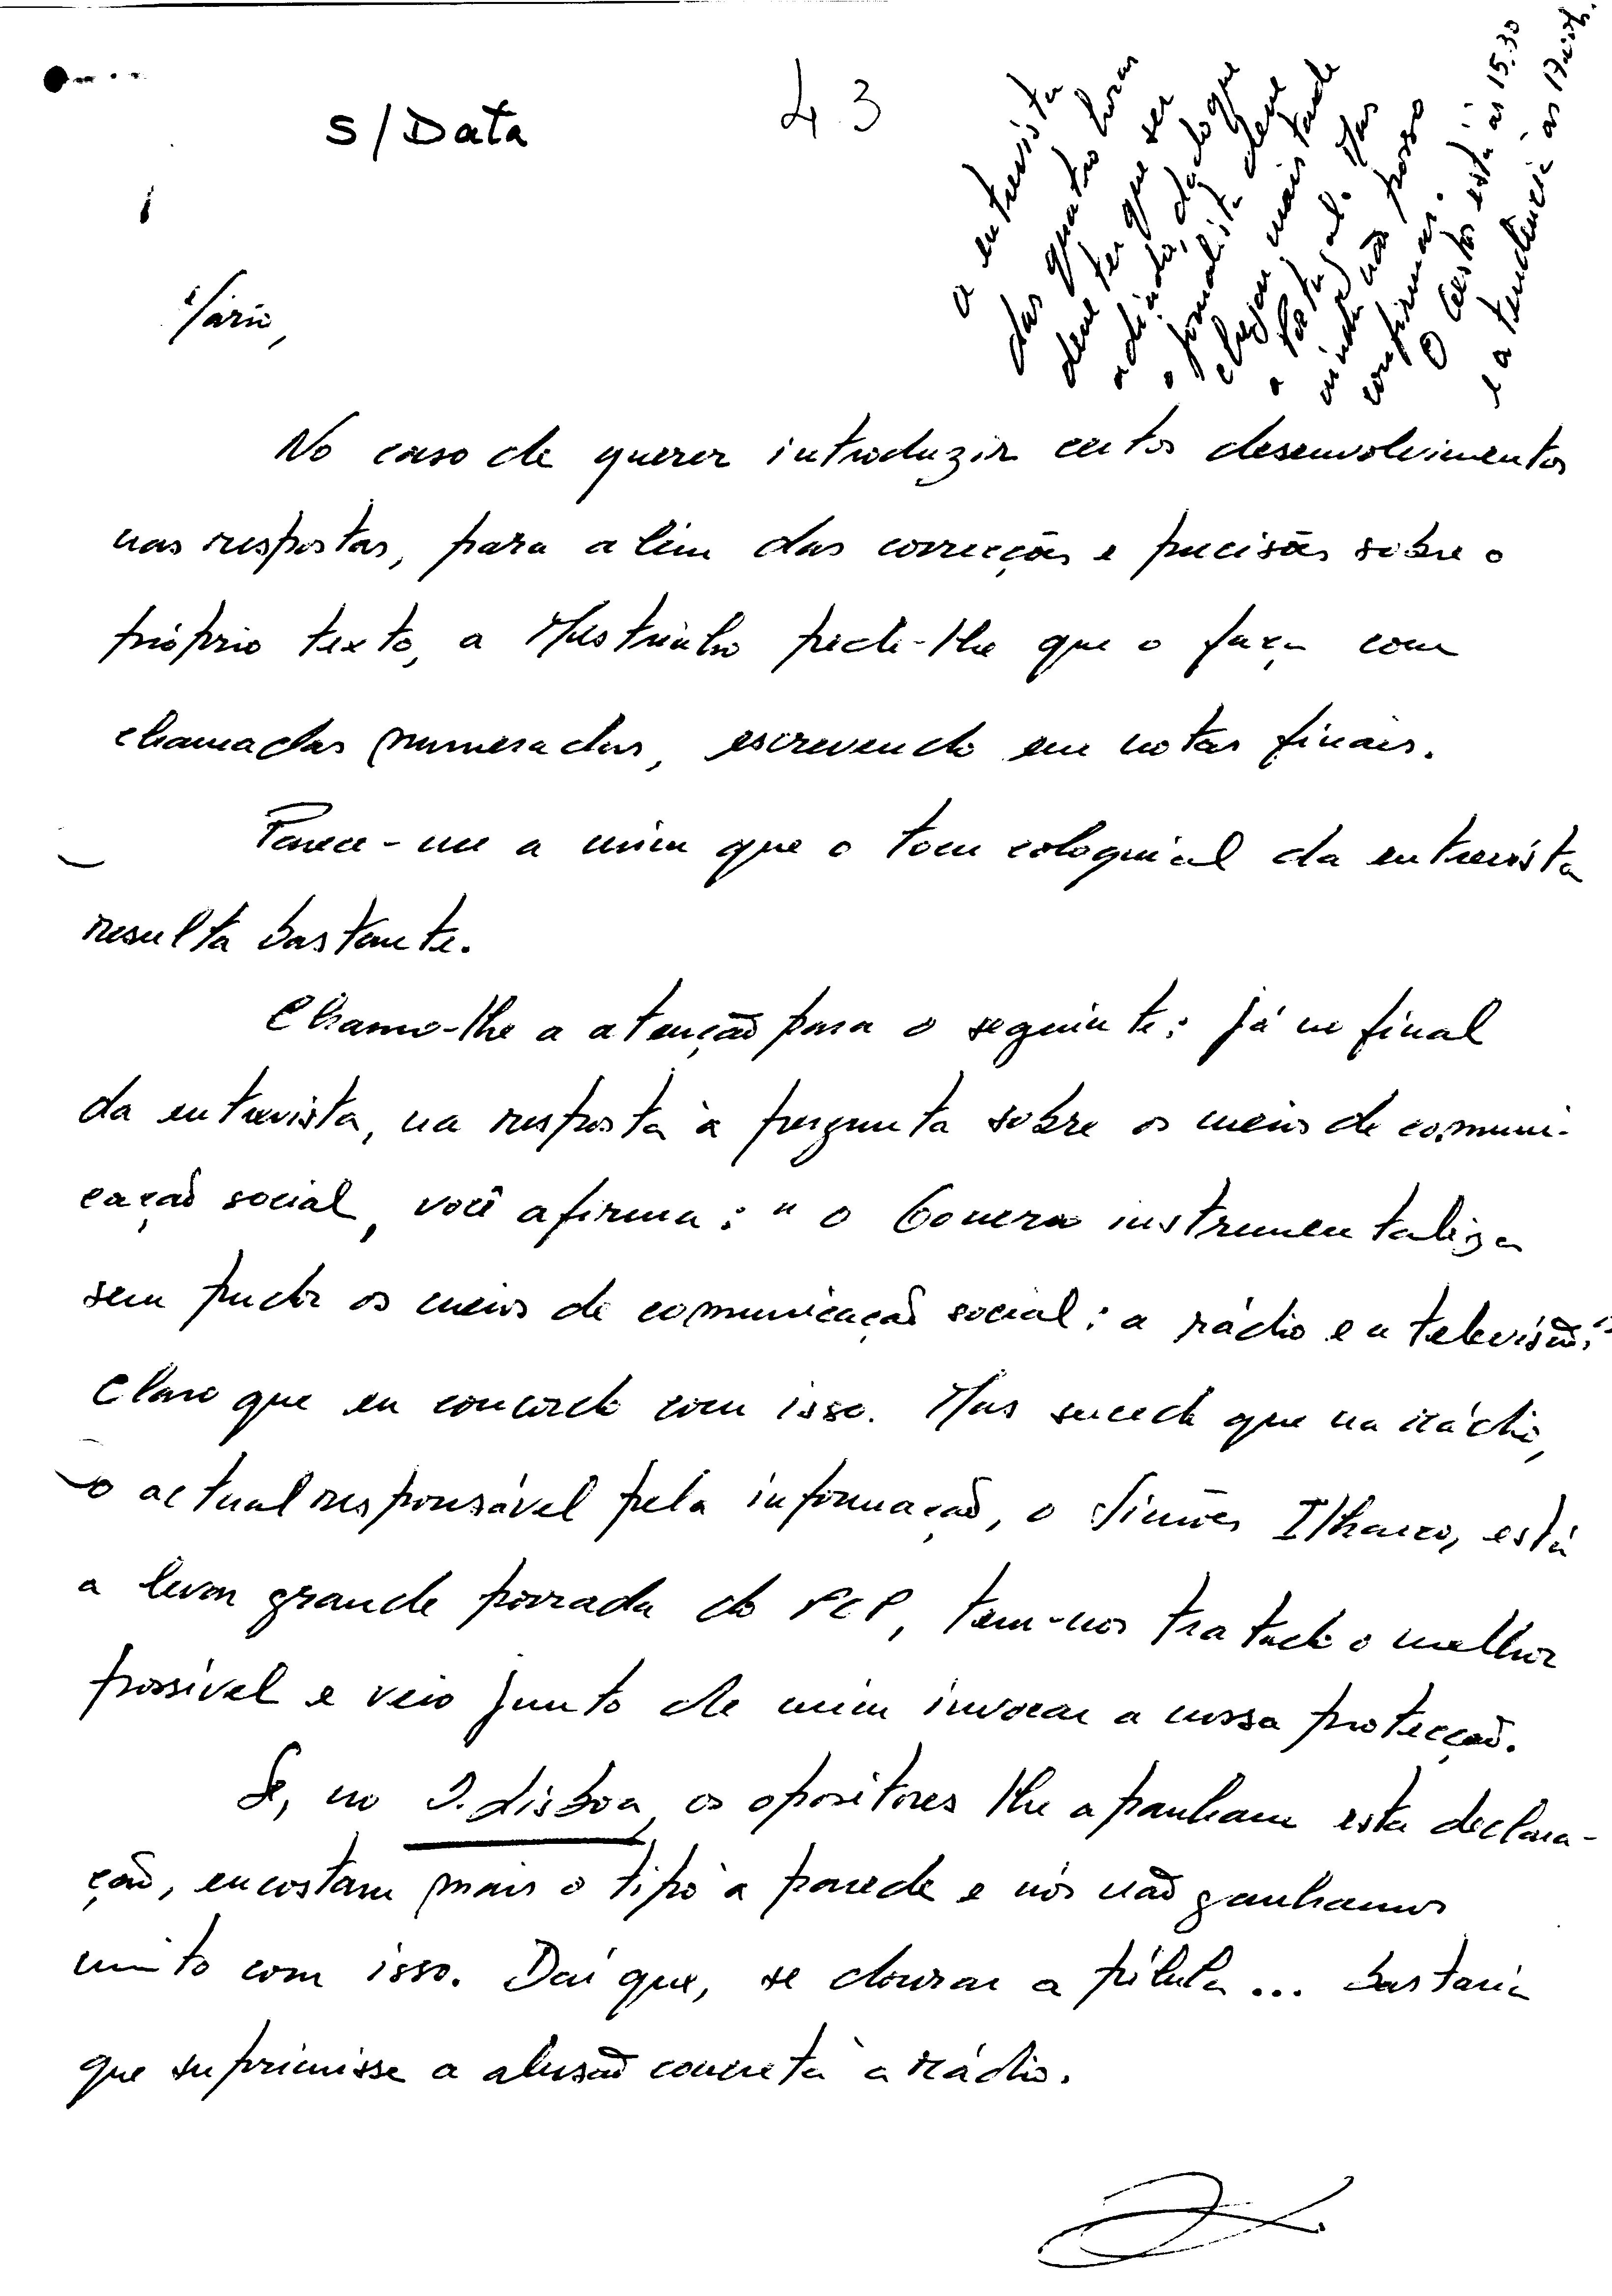 S/Data
43
a entrevista
das quatro horas
deve ter que ser
adiada, dado que
o jornalista deve
chegar mais tarde
a Portugal. Mas
ainda não posso
confirmar.
O certo está às 15.30
e a tendência às 17
Mário,
No caso de querer introduzir certos desenvolvimentos
nas respostas, para além das correcções e precisões sobre o
próprio texto, a Mestrinho pede-lhe que o faça com
chamadas numeradas, escrevendo em notas finais.
Parece-me a mim que o tom coloquial da entrevista
resulta bastante.
Chamo-lhe a atenção para o seguinte: já no final
da entrevista, na resposta à pergunta sobre os meios de comuni-
cação social, você afirma: "o Governo instrumentaliza
sem pudor os meios de comunicação social: a rádio e a televisão."
Claro que eu concordo com isso. Mas sucede que na rádio,
o actual responsável pela informação, o Simões Ilharco, está
a levar grande porrada do PCP, tem-nos tratado o melhor
possível e veio junto de mim invocar a nossa protecção.
Se, no D. Lisboa, os opositores lhe apanham esta declara-
ção, encostam mais o tipo à parede e nós não ganhamos
muito com isso. Daí que, se dourar a pílula... bastaria
que suprimisse a alusão concreta à rádio.